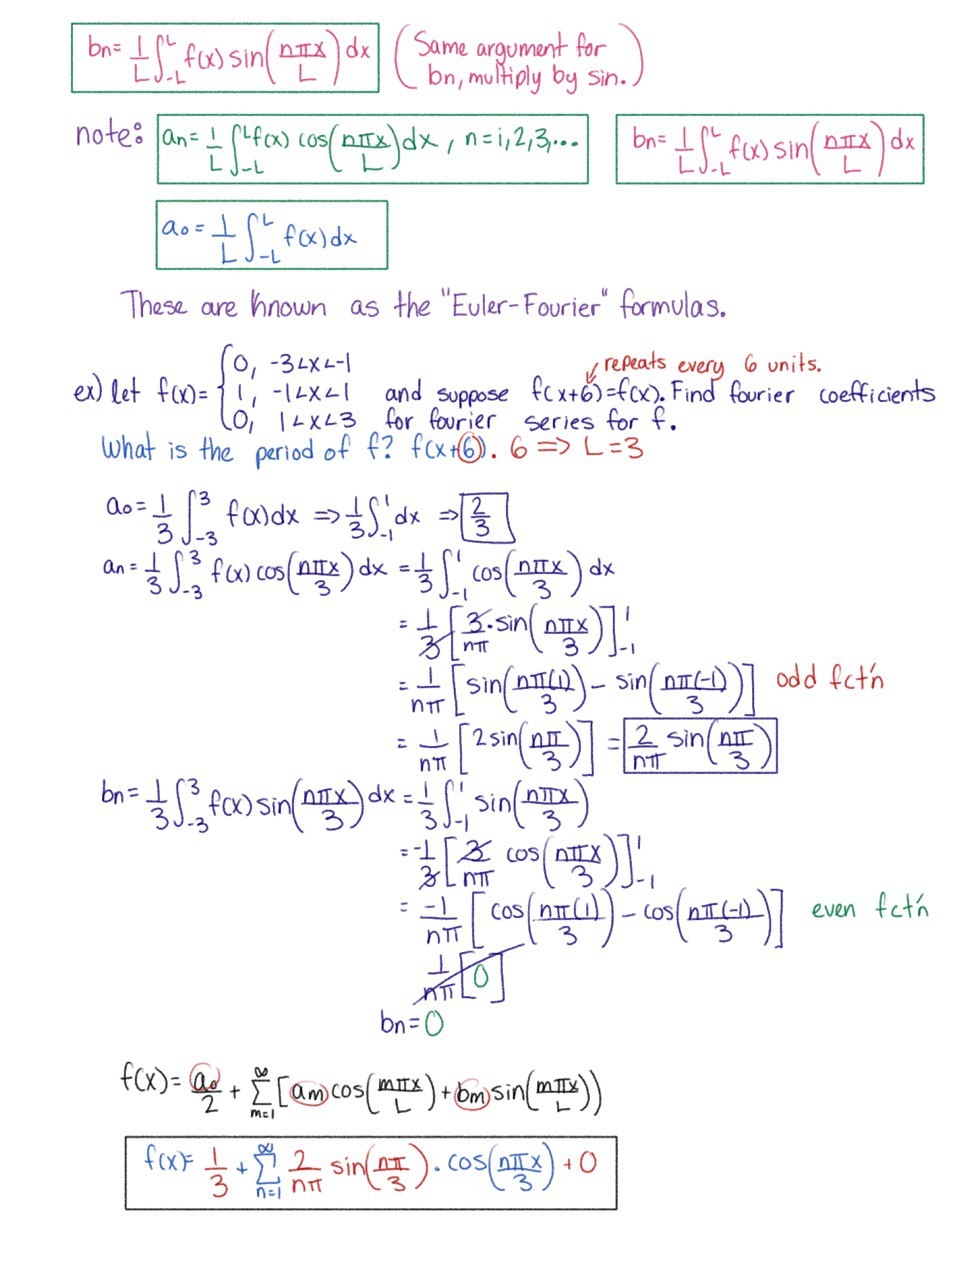 bn= 1/L ∫_-L^L f(x) sin(nπx/L) dx (Same argument for
bn, multiply by sin.)
note: an= 1/L ∫_-L^L f(x) cos(nπx/L) dx, n=1,2,3,... bn= 1/L ∫_-L^L f(x) sin(nπx/L) dx
a0= 1/L ∫_-L^L f(x)dx
These are known as the "Euler-Fourier" formulas.
repeats every 6 units.
ex) let f(x)= { 0, -3<x<-1
1, -1<x<1 and suppose f(x+6)=f(x). Find fourier coefficients
0, 1<x<3 for fourier series for f.
What is the period of f? f(x+6). 6 => L=3
a0= 1/3 ∫_-3^3 f(x)dx => 1/3 ∫_-1^1 dx => 2/3
an= 1/3 ∫_-3^3 f(x) cos(nπx/3) dx = 1/3 ∫_-1^1 cos(nπx/3) dx
= 1/3 [3/nπ · sin(nπx/3)]_-1^1
= 1/nπ [sin(nπ(1)/3) - sin(nπ(-1)/3)] odd fct'n
= 1/nπ [2sin(nπ/3)] = 2/nπ sin(nπ/3)
bn= 1/3 ∫_-3^3 f(x) sin(nπx/3) dx = 1/3 ∫_-1^1 sin(nπx/3)
= -1/3 [3/nπ cos(nπx/3)]_-1^1
= -1/nπ [cos(nπ(1)/3) - cos(nπ(-1)/3)] even fct'n
1/nπ [0]
bn=0
f(x)= a0/2 + ∑_m=1^∞ [am cos(mπx/L) + bm sin(mπx/L))
f(x)= 1/3 + ∑_n=1^∞ 2/nπ sin(nπ/3) · cos(nπx/3) + 0